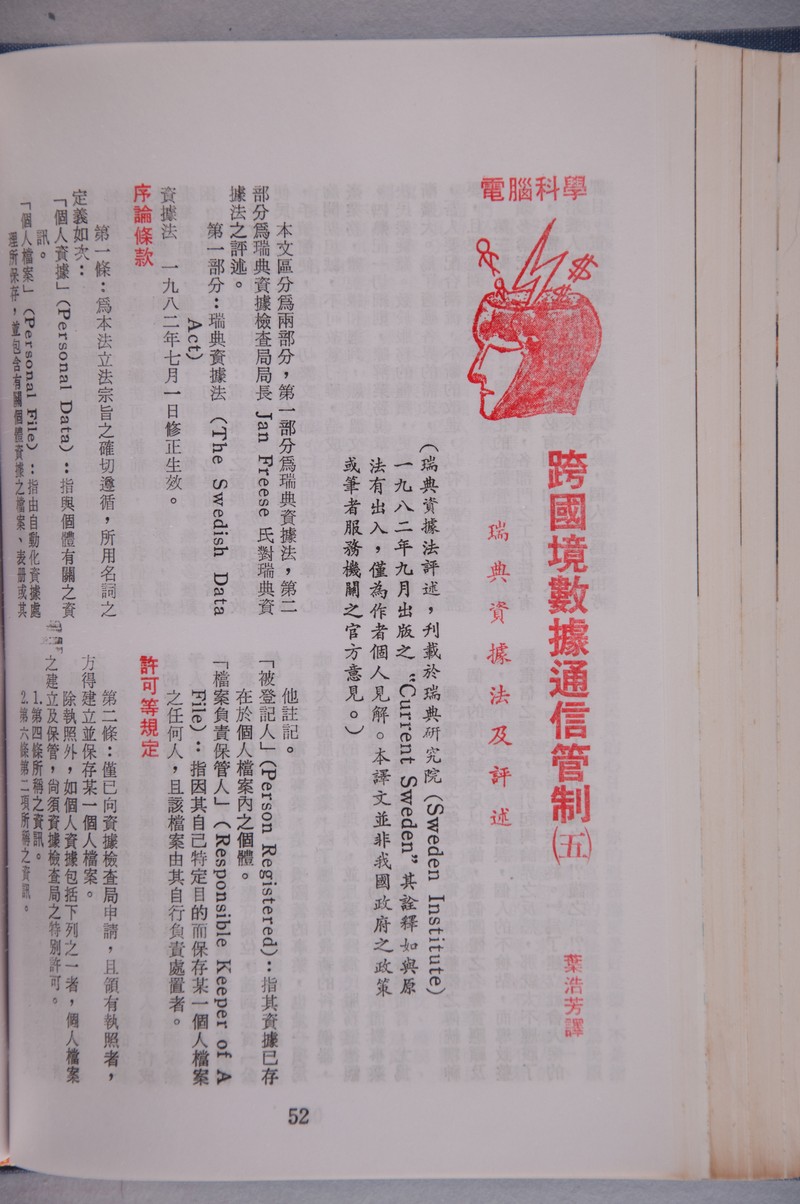 電腦科學
跨國境數據通信管制㈤
葉浩芳譯
瑞典資據法及評述
(瑞典資據法評述，刊載於瑞典研究院(Sweden Institute)
一九八二年九月出版之“Current Sweden”其詮釋如與原
法有出入，僅為作者個人見解。本譯文並非我國政府之政策
或筆者服務機關之官方意見。)
本文區分爲兩部分，第一部分爲瑞典資據法，第二
部分爲瑞典資據檢查局局長 Jan Freese 氏對瑞典資
據法之評述。
第一部分：瑞典資據法 (The Swedish Data
Act)
資據法 一九八二年七月一日修正生效。
序論條款
第一條：爲本法立法宗旨之確切遵循，所用名詞之
定義如次：
「個人資據」(Personal Data)：指與個體有關之資
訊。
「個人檔案」(Personal File)：指由自動化資據處
理所保存，並包含有關個體資據之檔案、表册或其
他註記。
「被登記人」(Person Registered)：指其資據已存
在於個人檔案內之個體。
「檔案負責保管人」(Responsible Keeper of A
File)：指因其自己特定目的而保存某一個人檔案
之任何人，且該檔案由其自行負責處置者。
許可等規定
第二條：僅已向資據檢查局申請，且領有執照者，
方得建立並保存某一個人檔案。
除執照外，如個人資據包括下列之一者，個人檔案
之建立及保管，尙須資據檢查局之特別許可。
1.第四條所稱之資訊。
2.第六條第二項所稱之資訊。
52